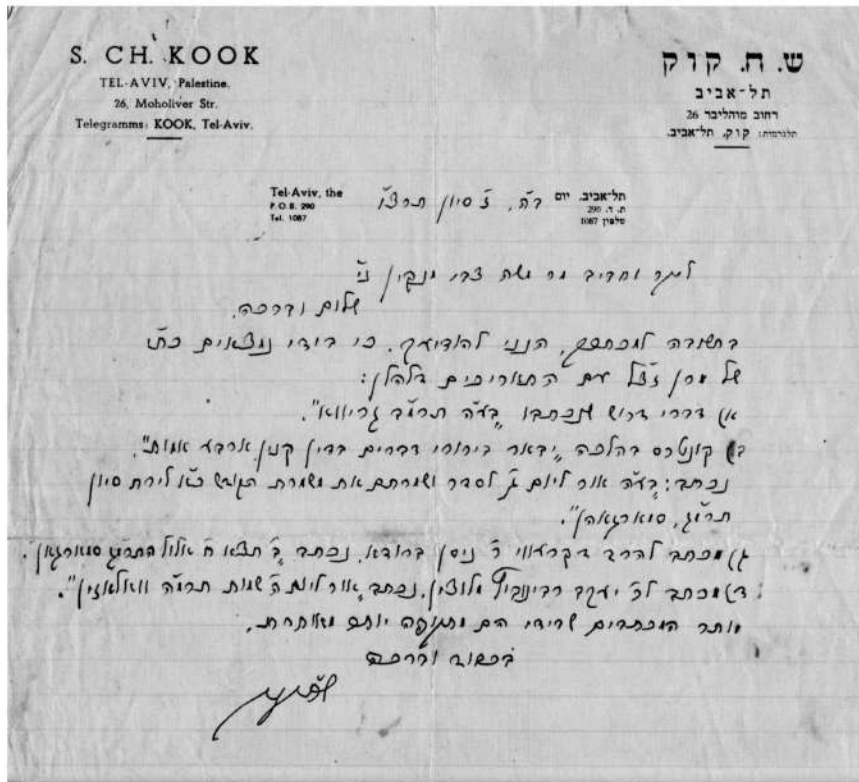 S. CH. KOOK
TEL-AVIV, Palestine.
26, Moholiver Str.
Telegramms: KOOK, Tel-Aviv.
ש. ח. קוק
תל-אביב
רחוב מוהליבר 26
תלגרמות: קוק, תל-אביב.
Tel-Aviv, the
P.O.B. 290
Tel. 1087
תל-אביב, יום ב"ה, ז' סיון תרצ"ו
ת. ד. 290
טלפון 1087
ליקר וחביב מר משה צבי
שלום וברכה.
בתשובה למכתבך, הנני להודיעך, כי בידי נמצאים כת"י
של מרן זצ"ל עם התאריכים דלהלן:
א) דברי דרוש שנכתבו „בע"ה תרמ"ב גריווא".
ב) קונטרס בהלכה „יבאר בירורי דברים בדין קנין ארבע אמות".
נכתב: „בע"ה אור ליום ג' לסדר ושמרתם את משמרת הקודש כ"א לירח סיון
תרמ"ג, סמארגאהן".
ג) מכתב להרב ר' ניסן ברודא, נכתב ח' אלול התרמ"ג סמארגאן.
ד) מכתב לר' יעקב רבינוביץ נכתב „אור ליום ה' שמות תרמ"ה וואלאזין".
יותר המכתבים שבידי הם מתקופה יותר מאוחרת.
בכבוד וברכה